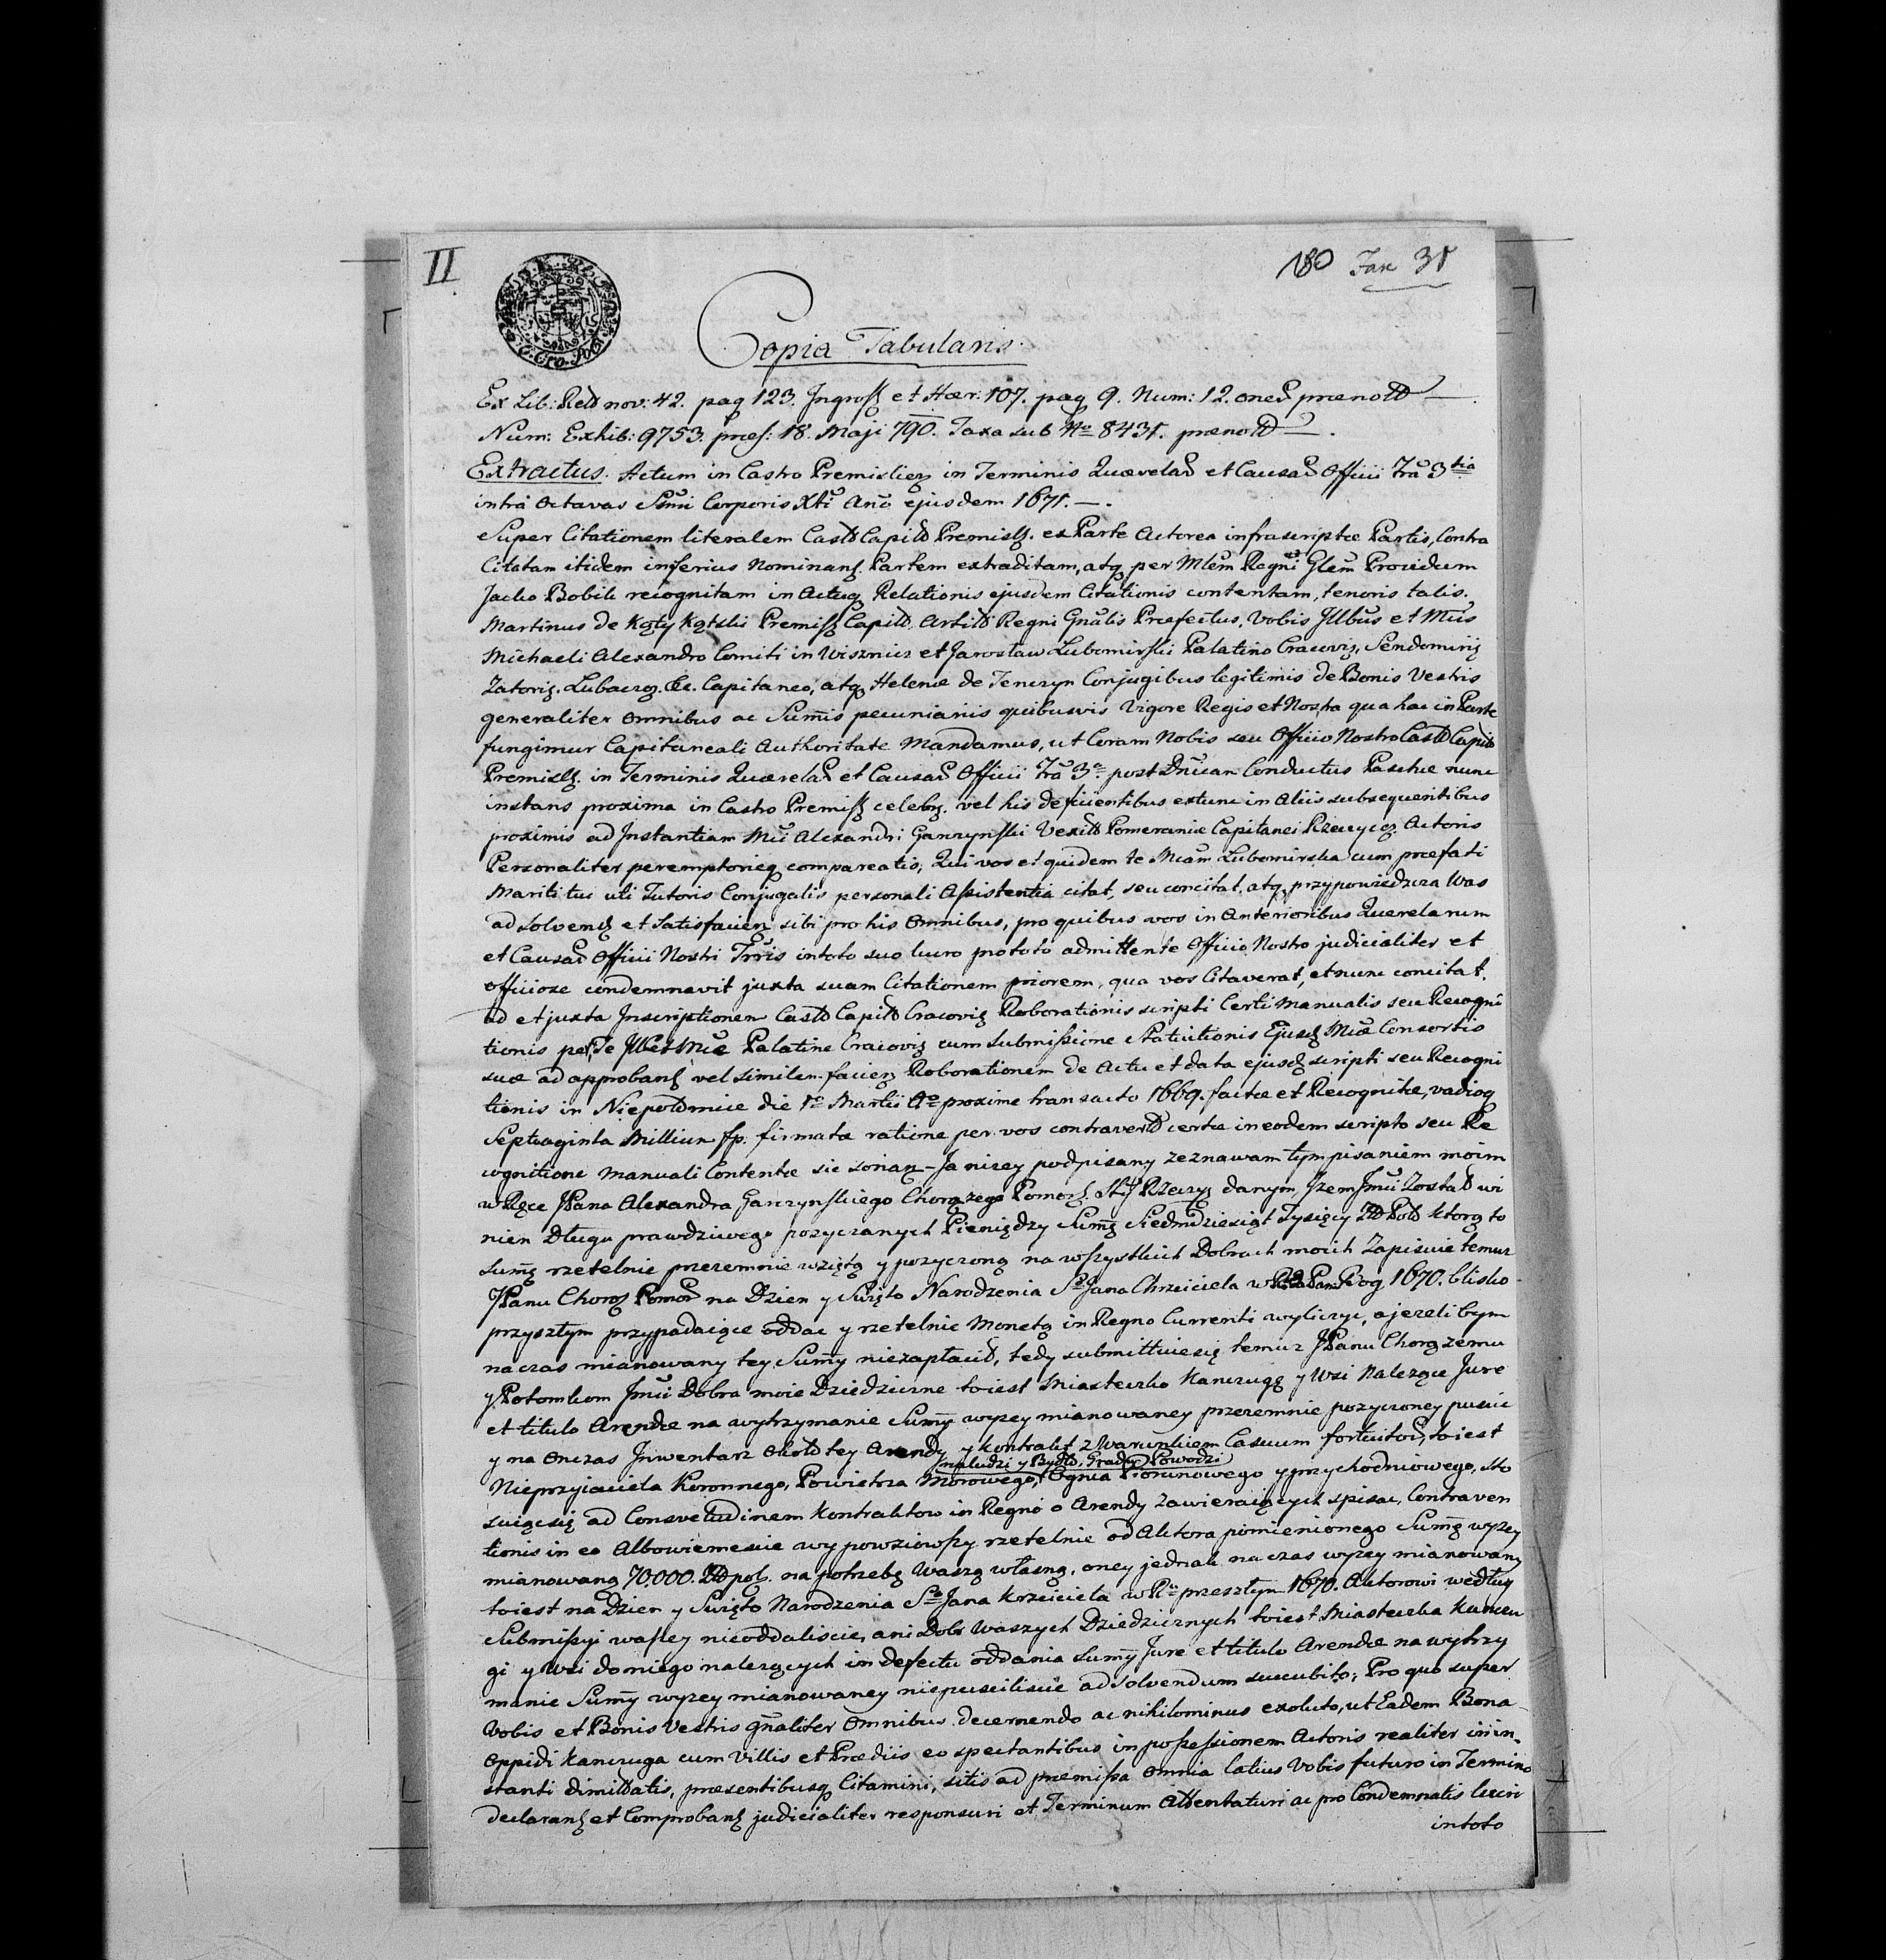 II
180 Fasc 31
Copia Tabularis
Ex Lib: Reld nov: 42. pag 123. Jngross et Haer: 107. pag 9. Num: 12. oner prænott
Num: Exhib: 9753. præs: 18. Maji 790. Taxa sub Nro 8431. prænott
Extractus. Actum in Castro Premislien in Terminis Querelar et Causar Officii Fra 3tia
intra Octavas Smi Corporis Xti Ano ejusdem 1671.
Super Citationem literalem Cast Capit Premisl. ex Parte Actorea infrascriptæ Partis, Contra
Citatam itidem inferius Nominan. Partem extraditam, atq per Mlem Regni Glem Providum
Jacko Bobik recognitam in Actuq Relationis ejusdem Citationis contentam, tenoris talis.
Martinus de Kąty Kątski Premisl Capit, Artil Regni Gnalis Præfectus, Vobis Jllbus et Mcis
Michaeli Alexandro Comiti in Wisznicz et Jarosław Lubomirski Palatino Cracovi, Sendomiri
Zatori, Lubaczo. &c. Capitaneo, atq Helenæ de Tenczyn Conjugibus legitimis de Bonis Vestris
generaliter omnibus ac Summis pecuniariis quibusvis Vigore Regis et Nostra qua hac in Parte
fungimur Capitaneali Authoritate Mandamus, ut Coram Nobis seu Officio Nostro Cast Capit
Premisl. in Terminis Querelar et Causar Officii Fra 3a post Dnicam Conductus Paschæ nunc
instans proxima in Castro Premisl celebr. vel his deficientibus extunc in Aliis subsequentibus
proximis ad Jnstantiam Mci Alexandri Garczynski Vexil Pomeraniæ Capitanei Rzeczyc Actoris
Personaliter peremptorieq compareatis, Qui vos et quidem te Mcam Lubomirska cum præfati
Mariti tui uti Tutoris Conjugalis personali Assistentia citat, seu concitat, atq przypowiedzcza Was
ad solvend et Satisfacien sibi pro his Omnibus, pro quibus vos in Anterioribus Querelarum
et Causar Officii Nostri Trris intoto suo lucro pro toto admittente Officio Nostro judicialiter et
officiose condemnavit juxta suam Citationem priorem, qua vos Citaverat, et nunc concitat.
ad et juxta Jnscriptionem Cast Capit Cracovi Roborationis scripti Certi Manualis seu Recogni
tionis per Te Jllet Mce Palatine Cracovi cum submissione Statuitionis Ejusd Mcæ Consortis
suæ ad approband vel similem facien Roborationem de Actu et data ejusd scripti seu Recogni
tionis in Niepołomice die 1a Martii Ao proxime transacto 1669. factæ et Recognitæ, vadioq
Septuaginta Millium fp. firmatæ ratione per vos contravert certæ in eodem scripto seu Re
cognitione Manuali Contentæ sic sonan - Ja nizey podpisany zeznawam tym pisaniem moim
w Ręce JPana Alexandra Garczynskiego Chorązego Pomors. Stty Rzeczy danym, Jzem Jmci został wi
nien Długu prawdziwego pozyczanych Pieniędzy Summę Siedmdziesiąt Tysięcy Zł Pol ktorą to
Summę rzetelnie przezemnie wziętą y pozyczoną na wszystkich Dobrach moich Zapisuie temuz
JPanu Chorą Pomor na Dzien y Swięto Narodzenia S Jana Chrzciciela w Ro da Pan Bog 1670. blisko
przyszłym przypadaiące oddac y rzetelnie Monetą in Regno Currenti wyliczyc, a jezelibym
na czas mianowany tey Summy niezapłacił, tedy submittuiesię temuz JPanu Chorązemu
y Potomkom Jmci Dobra moie Dziedziczne toiest Miasteczko Kanczugę y Wsi Nalezące Jure
et titulo Arendæ na wytrzymanie Summy wyzey mianowaney przezemnie pozyczoney puscic
y na onczas Jnwentarz około tey Arendy y Kontrakt z Warunkiem Casuum fortuitor, toiest
na ludzi y Bydło, Grady Powodzi
Nieprzyiaciela Koronnego, Powietrza Morowego, Ognia Piorunowego y przychodniowego, sto
suiącsię ad Consvetudinem Kontraktow in Regno o Arendy Zawieraiących spisac, Contraven
tionis in eo Albowiemescie wy powziowszy rzetelnie od Aktora pomienionego Summę wyzey
mianowaną 70,000. Zł pol. na potrzebę Waszą własną, oney jednak na czas wyzey mianowany
toiest na Dzien y Swięto Narodzenia S Jana Krzciciela w Ru przeszłym 1670. Aktorowi według
Submissyi waszey nieoddaliscie, ani Dobr Waszych Dziedzicznych toiest Miasteczka Kanczu
gi y wsi do niego nalezących in defectu oddania Summy Jure et titulo Arendæ na wytrzy
manie Summy wyzey mianowaney niepuscilisci ad solvendum succubito; Pro quo super
Vobis et Bonis Vestris gnaliter Omnibus decernendo ac nihilominus exoluto, ut Eadem Bona
Oppidi Kanczuga cum Villis et Prædiis eo spectantibus in possessionem Actoris realiter in in=
stanti dimittatis, præsentibusq Citamini, sitis ad præmissa Omnia latius Vobis futuro in Termino
declaran et Comproban judicialiter responsuri et Terminum Attentaturi ac pro Condemnatis lucri
intoto